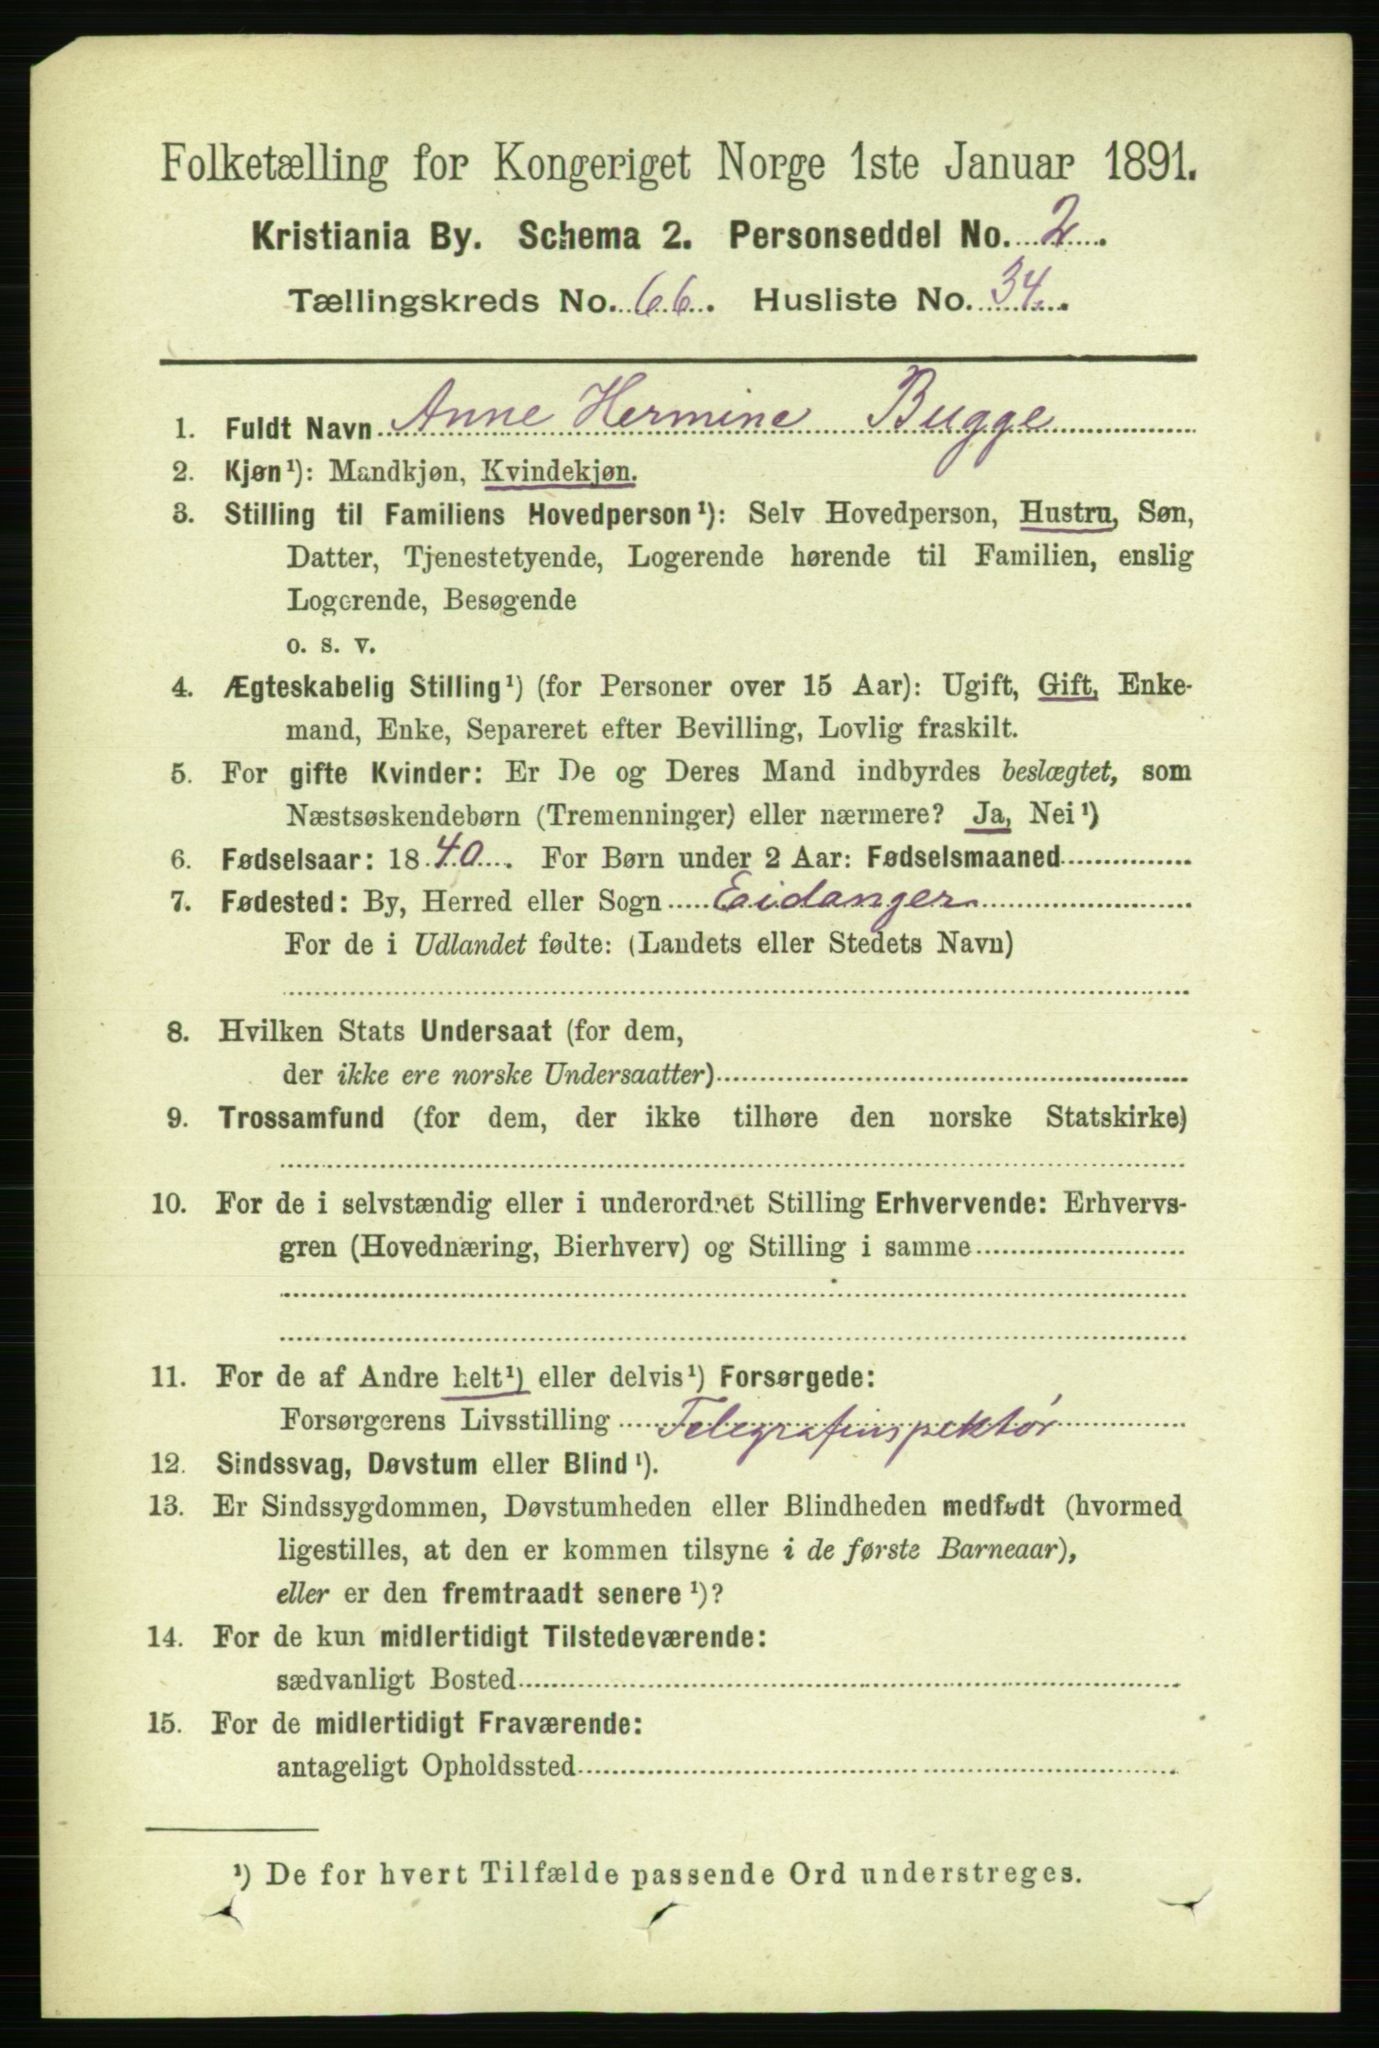 Folketælling for Kongeriget Norge 1ste Januar 1891.
Kristiania By. Schema 2. Personseddel No. 2.
Tællingskreds No. 66. Husliste No. 34.
1. Fuldt Navn Anne Hermine Bugge
2. Kjøn¹): Mandkjøn, Kvindekjøn.
3. Stilling til Familiens Hovedperson¹): Selv Hovedperson, Hustru, Søn,
Datter, Tjenestetyende, Logerende hørende til Familien, enslig
Logerende, Besøgende
o. s. v.
4. Ægteskabelig Stilling¹) (for Personer over 15 Aar): Ugift, Gift, Enke-
mand, Enke, Separeret efter Bevilling, Lovlig fraskilt.
5. For gifte Kvinder: Er De og Deres Mand indbyrdes beslægtet, som
Næstsøskendebørn (Tremenninger) eller nærmere? Ja, Nei¹)
6. Fødselsaar: 1840. For Børn under 2 Aar: Fødselsmaaned
7. Fødested: By, Herred eller Sogn Eidanger
For de i Udlandet fødte: (Landets eller Stedets Navn)
8. Hvilken Stats Undersaat (for dem,
der ikke ere norske Undersaatter)
9. Trossamfund (for dem, der ikke tilhøre den norske Statskirke)
10. For de i selvstændig eller i underordnet Stilling Erhvervende: Erhvervs-
gren (Hovednæring, Bierhverv) og Stilling i samme
11. For de af Andre helt¹) eller delvis¹) Forsørgede:
Forsørgerens Livsstilling Telegrafinspektør
12. Sindssvag, Døvstum eller Blind¹).
13. Er Sindssygdommen, Døvstumheden eller Blindheden medfødt (hvormed
ligestilles, at den er kommen tilsyne i de første Barneaar),
eller er den fremtraadt senere¹)?
14. For de kun midlertidigt Tilstedeværende:
sædvanligt Bosted
15. For de midlertidigt Fraværende:
antageligt Opholdssted
¹) De for hvert Tilfælde passende Ord understreges.